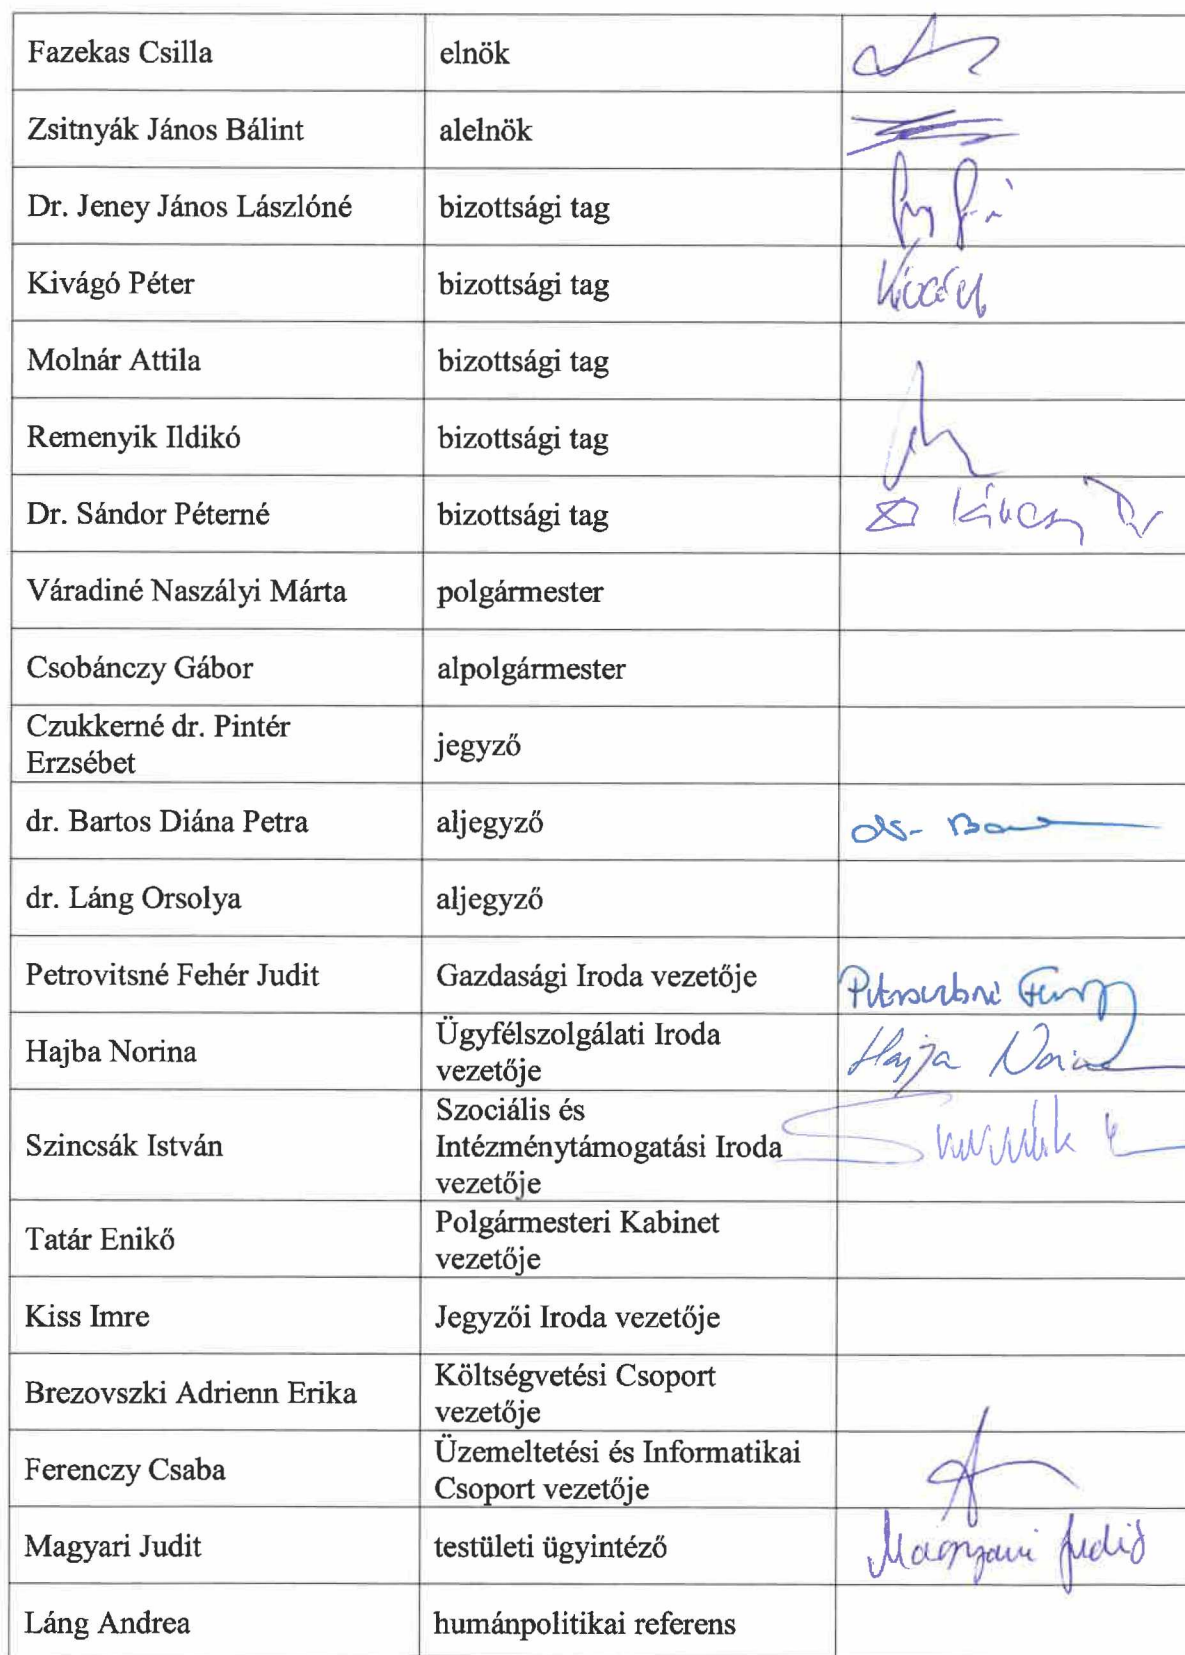 Fazekas Csilla elnök
Zsitnyák János Bálint alelnök
Dr. Jeney János Lászlóné bizottsági tag
Kivágó Péter bizottsági tag
Molnár Attila bizottsági tag
Remenyik Ildikó bizottsági tag
Dr. Sándor Péterné bizottsági tag
Váradiné Naszályi Márta polgármester
Csobánczy Gábor alpolgármester
Czukkerné dr. Pintér
Erzsébet
jegyző
dr. Bartos Diána Petra aljegyző
dr. Láng Orsolya aljegyző
Petrovitsné Fehér Judit Gazdasági Iroda vezetője
Hajba Norina
Ügyfélszolgálati Iroda
vezetője
Szincsák István
Szociális és
Intézménytámogatási Iroda
vezetője
Tatár Enikő
Polgármesteri Kabinet
vezetője
Kiss Imre Jegyzői Iroda vezetője
Brezovszki Adrienn Erika
Költségvetési Csoport
vezetője
Ferenczy Csaba
Üzemeltetési és Informatikai
Csoport vezetője
Magyari Judit testületi ügyintéző Magyari Judit
Láng Andrea humánpolitikai referens